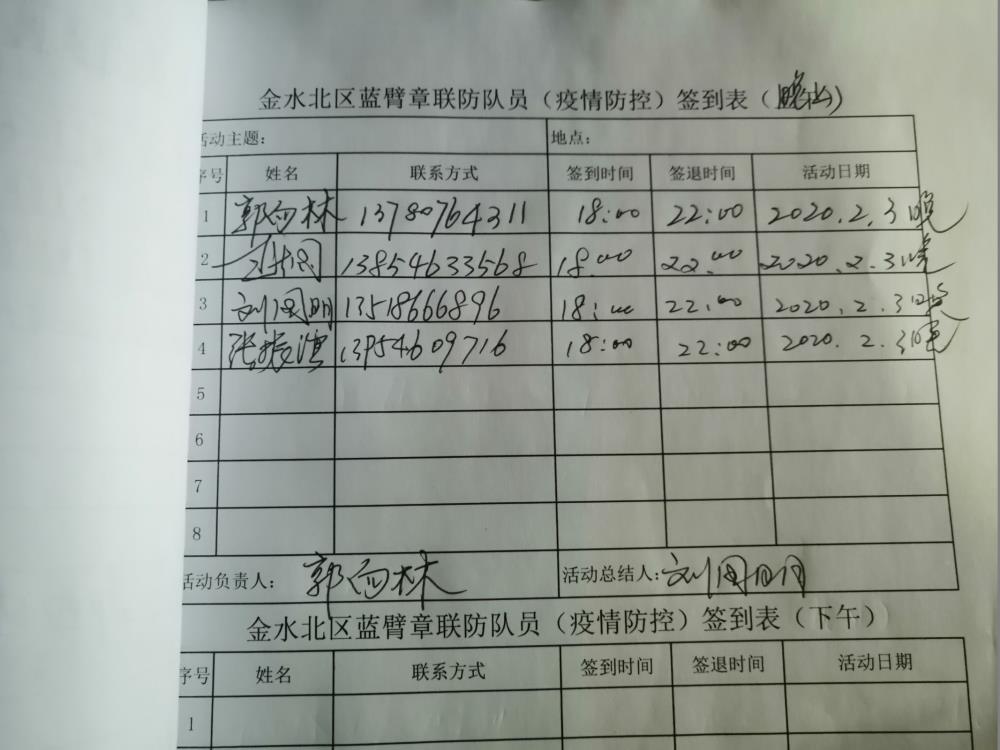 金水北区蓝臂章联防队员（疫情防控）签到表（晚上）
活动主题： 地点：
序号 姓名 联系方式 签到时间 签退时间 活动日期
1 郭西林 13780764311 18:00 22:00 2020.2.3晚
2 13854633568 18:00 22:00 2020.2.3晚
3 刘国明 13518666896 18:00 22:00 2020.2.3晚
4 张振滨 13954609716 18:00 22:00 2020.2.3晚
5
6
7
8
活动负责人：郭西林 活动总结人：刘国明
金水北区蓝臂章联防队员（疫情防控）签到表（下午）
序号 姓名 联系方式 签到时间 签退时间 活动日期
1